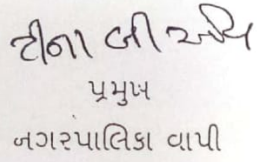 ટીના બી
પ્રમુખ
નગરપાલિકા વાપી